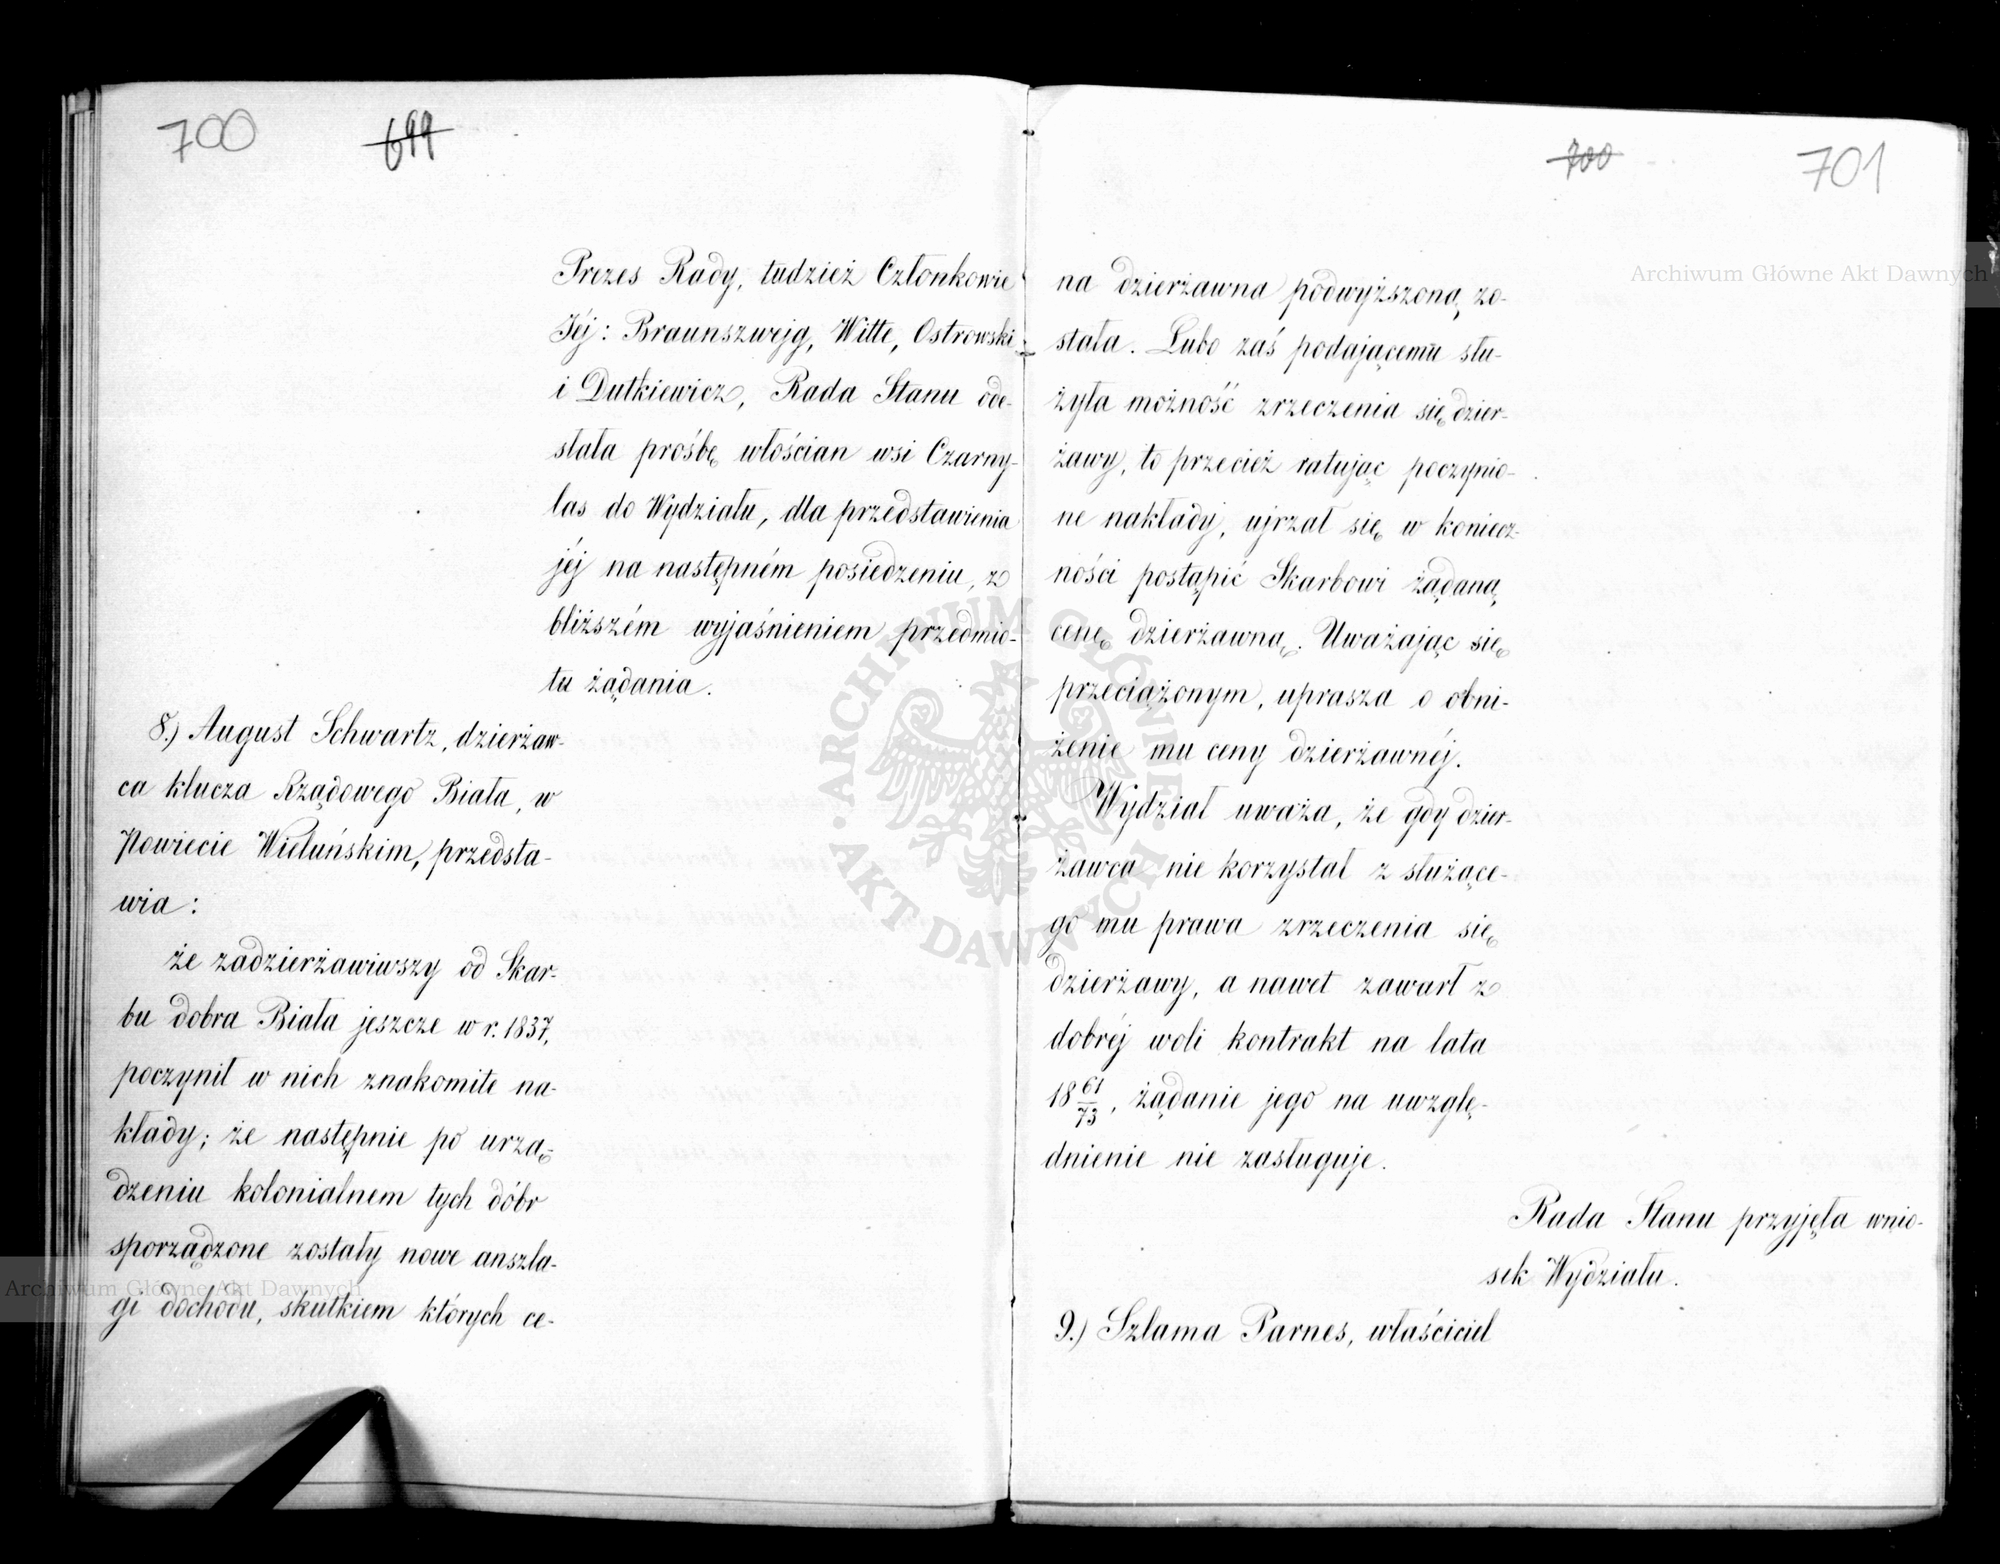 700
699
Prezes Rady, tudzież Członkowie
Jéj: Braunszwejg, Witte, Ostrowski
i Dutkiewicz, Rada Stanu ode-
słała prośbę włościan wsi Czarny-
las do Wydziału, dla przedstawienia
jéj na następném posiedzeniu, z
bliższém wyjaśnieniem przedmio-
tu żądania.
8.) August Schwartz, dzierżaw-
ca klucza Rządowego Biała, w
Powiecie Wieluńskim, przedsta-
wia:
że zadzierżawiwszy od Skar-
bu dobra Biała jeszcze w r. 1837,
poczynił w nich znakomite na-
kłady; że następnie po urzą-
dzeniu kolonialnem tych dóbr
sporządzone zostały nowe anszla-
gi dochodu, skutkiem których ce-
700
701
na dzierżawna podwyższoną zo-
stała. Lubo zaś podającemu słu-
żyła możność zrzeczenia się dzier-
żawy, to przecież ratując poczynio-
ne nakłady, ujrzał się w koniecz-
ności postąpić Skarbowi żądaną
cenę dzierżawną. Uważając się
przeciążonym, uprasza o obni-
żenie mu ceny dzierżawnéj.
Wydział uważa, że gdy dzier-
żawca nie korzystał z służące-
go mu prawa zrzeczenia się
dzierżawy, a nawet zawarł z
dobréj woli kontrakt na lata
18 61/73, żądanie jego na uwzglę-
dnienie nie zasługuje.
Rada Stanu przyjęła wnio-
sek Wydziału.
9.) Szlama Parnes, właściciel
Archiwum Główne Akt Dawnych
Archiwum Główne Akt Dawnych
ARCHIWUM GŁÓWNE AKT DAWNYCH